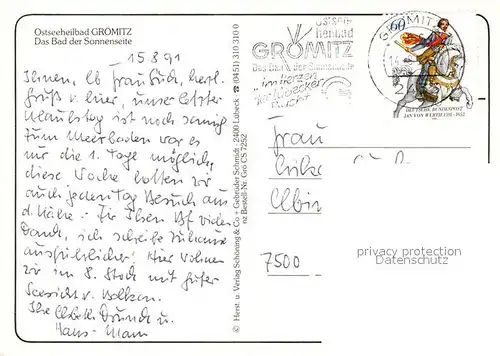 Ostseeheilbad GRÖMITZ
Das Bad der Sonnenseite
15.8.91
Ihnen, lb Frau Buch, herzl.
Gruß v. hier, unser letzter
Urlaubstag ist noch sonnig
zum Meerbaden war es
nur die 1. Tage möglich,
diese Woche hatten wir
auch jeden Tag Besuch aus
d. Nähe. Für Ihren Bf vielen
Dank, ich schreibe zuhause
ausführlicher! Hier wohnen
wir im 8. Stock mit guter
Seesicht v. Balkon.
Ihre Elsbeth u.
Hans-
© Herst. u. Verlag Schöning & Co + Gebrüder Schmidt, 2400 Lübeck ☎ (0451) 310 310 0
nz Bestell-Nr. Grö CS 7252
Ostsee
heilbad
GRÖMITZ
Das Bad der Sonnenseite
„im Herzen
der Lübecker
Bucht"
GRÖMITZ
60
2
DEUTSCHE BUNDESPOST
JAN VON WERTH 1591-1652
Frau
7500
privacy protection
Datenschutz